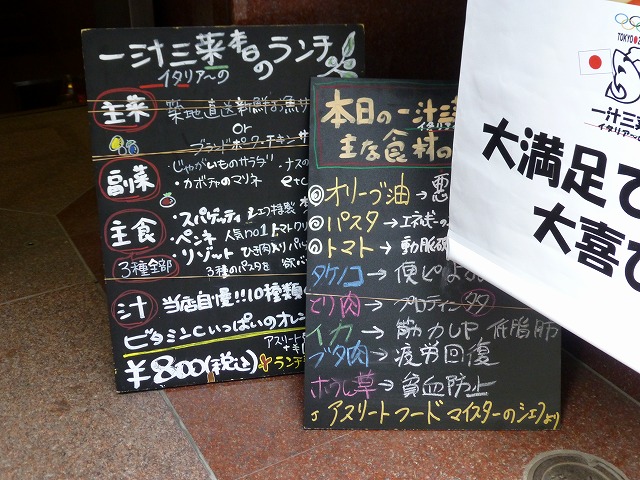 一汁三菜 春のランチ
イタリア〜の
主菜 築地直送新鮮お魚サ
or
ブランドポーク・チキン サ
副菜 ・じゃがいものサラダ ・ナスの
・カボチャのマリネ etc
主食 ・スパゲッティ シェフ特製
・ペンネ 人気no1トマトクリ
・リゾット ひき肉入り
3種全部 3種のパスタを
汁 当店自慢!!10種類
ビタミンCいっぱいのオレン
アスリート
¥800(税込) ランチ
本日の一汁三
イタリア
主な食材の
オリーブ油→悪
パスタ→エネルギーの
トマト→動脈硬
タケノコ→便ピ
とり肉→プロテイン
イカ→筋力UP 低脂肪
ブタ肉→疲労回復
ホウレン草→貧血防止
アスリートフードマイスターのシェフより
TOKYO2
一汁三
イタリア〜
大満足で
大喜で